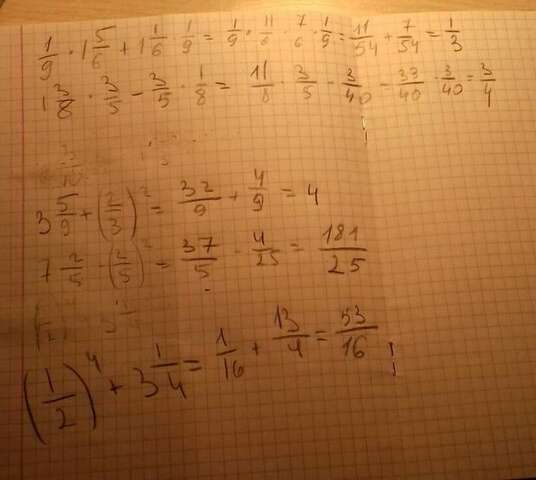 1/9 · 1 5/6 + 1 1/6 · 1/9 = 1/9 · 11/6 · 7/6 · 1/9 = 11/54 + 7/54 = 1/3
1 3/8 · 3/5 - 3/5 · 1/8 = 11/8 · 3/5 - 3/40 = 33/40 - 3/40 = 3/4
3 5/9 + (2/3)² = 32/9 + 4/9 = 4
7 2/5 - (2/5)² = 37/5 - 4/25 = 181/25
(1/2)⁴ + 3 1/4 = 1/16 + 13/4 = 53/16